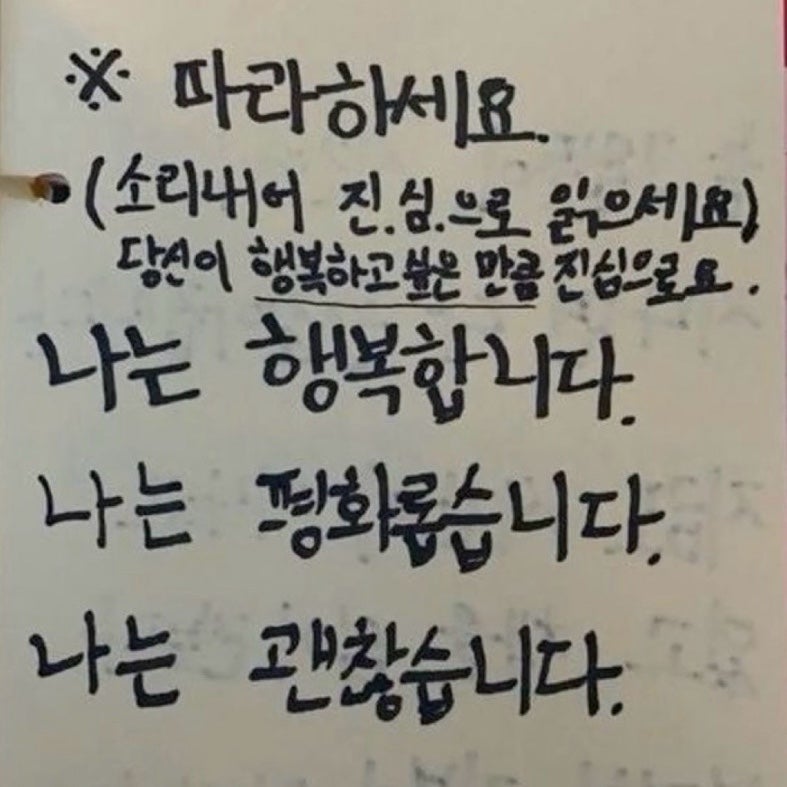 ※ 따라하세요.
(소리내어 진.심.으로 읽으세요)
당신이 행복하고싶은 만큼 진심으로요.
나는 행복합니다.
나는 평화롭습니다.
나는 괜찮습니다.